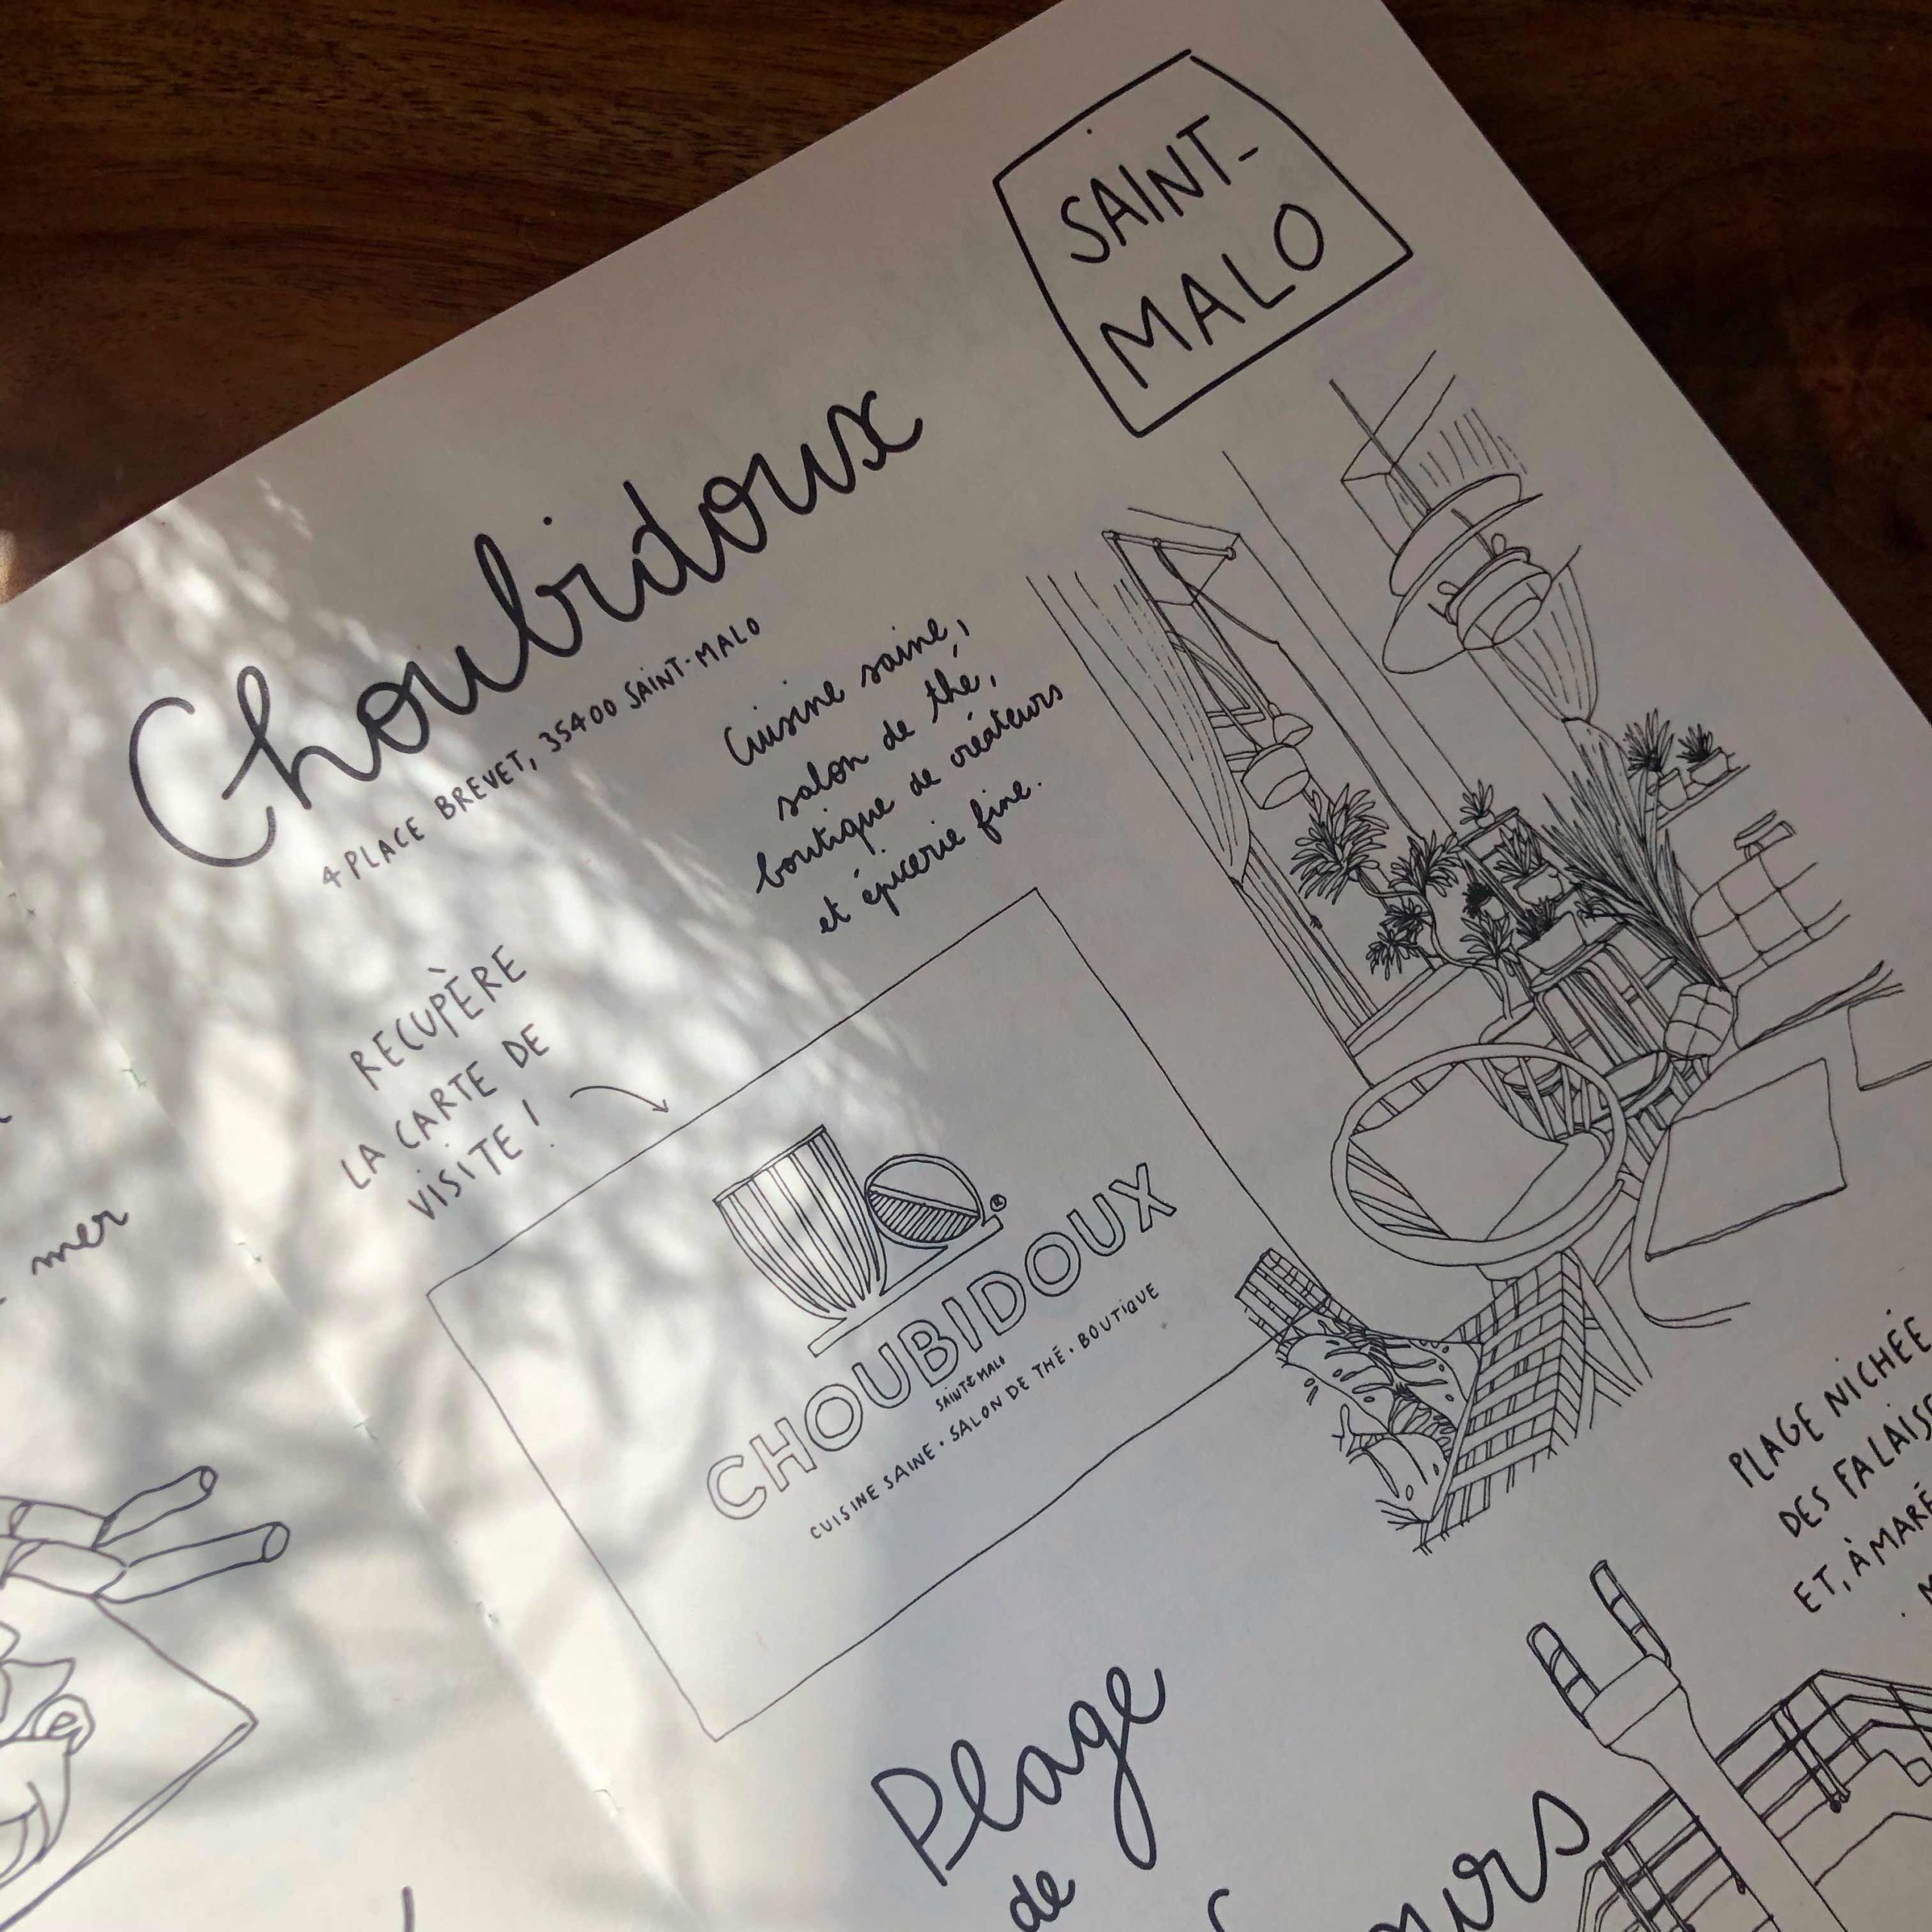 SAINT-
MALO
Choubidoux
4 PLACE BREVET, 35400 SAINT-MALO
Cuisine saine,
salon de thé,
boutique de créateurs
et épicerie fine.
RECUPÈRE
LA CARTE DE
VISITE !
®
CHOUBIDOUX
SAINT MALO
CUISINE SAINE · SALON DE THÉ · BOUTIQUE
mer
PLAGE NICHÉE
DES FALAISE
ET, À MARÉ
Plage
de